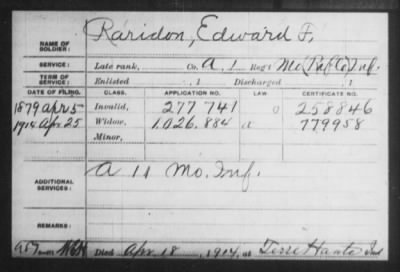 Raridon, Edward F.
NAME OF SOLDIER:
SERVICE: Late rank, Co. A, 1 Reg't Mo. Inf.
TERM OF SERVICE: Enlisted , 1 Discharged , 1
DATE OF FILING. CLASS. APPLICATION NO. LAW CERTIFICATE NO.
1879 Apr 5 Invalid, 277 741 258846
1914 Apr 25 Widow, 1.026.884 a 779958
Minor,
A 11 Mo. Inf.
ADDITIONAL SERVICES:
REMARKS:
Died Apr. 18, 1914, at Terre Haute Ind